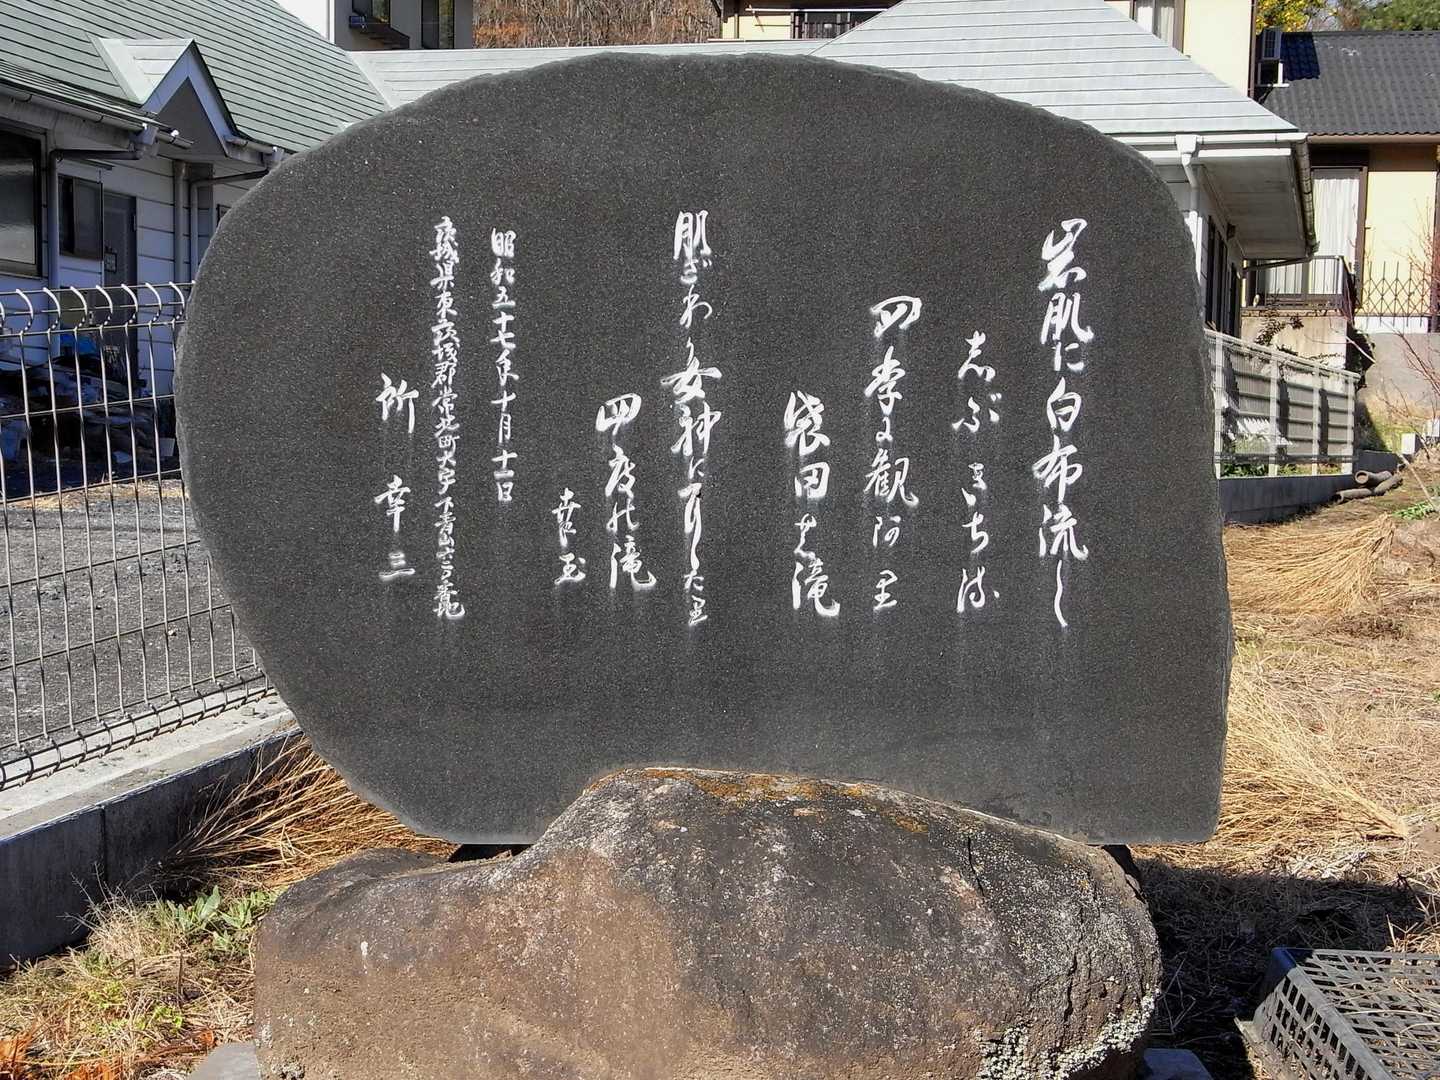 岩肌に白布流し
志ぶきちる
四季に観阿里
袋田の滝
肌ざわり女神に耳した里
四度の滝
幸玉
昭和五十七年十月十一日
茨城県東茨城郡常北町大字下青山六三番地
所 幸三